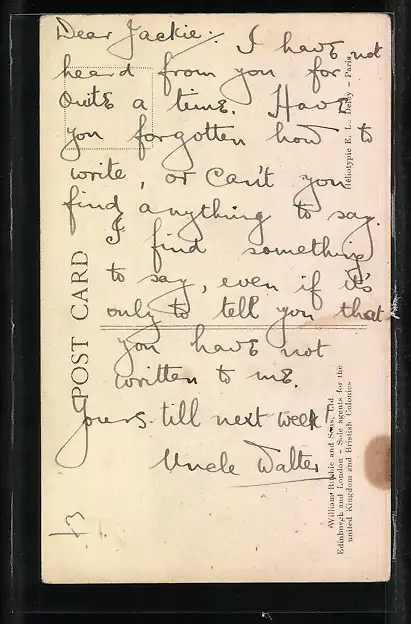 Dear Jackie:
I have not
heard from you for
Quite a time. Have
you forgotten how to
write, or can't you
find anything to say.
I find something
to say, even if it's
only to tell you that
you have not
written to me.
Yours till next week
Uncle Walter
13
POST CARD
Héliotypie E. L. Deley – Paris
William Ritchie and Sons, Ltd.
Edinburgh and London - Sole agents for the
united Kingdom and Bristish Colonies